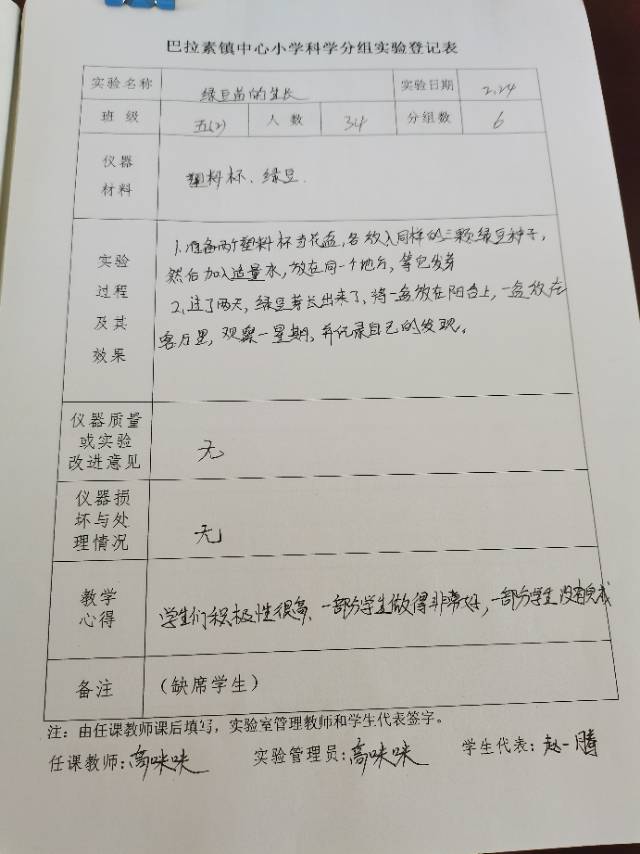 巴拉素镇中心小学科学分组实验登记表
实验名称 绿豆苗的生长 实验日期 2.24
班级 五(2) 人数 34 分组数 6
仪器材料 塑料杯、绿豆.
实验过程及其效果
1.准备两个塑料杯当花盆,各放入同样的三颗绿豆种子,
然后加入适量水,放在同一个地方,等它发芽
2.过了两天,绿豆芽长出来了,将一盆放在阳台上,一盒放在
客厅里,观察一星期,并记录自己的发现。
仪器质量或实验改进意见 无
仪器损坏与处理情况 无
教学心得 学生们积极性很高、一部分学生做得非常好,一部分学生没有完成
备注 (缺席学生)
注:由任课教师课后填写,实验室管理教师和学生代表签字。
任课教师:高咪咪 实验管理员:高咪咪 学生代表:赵一腾